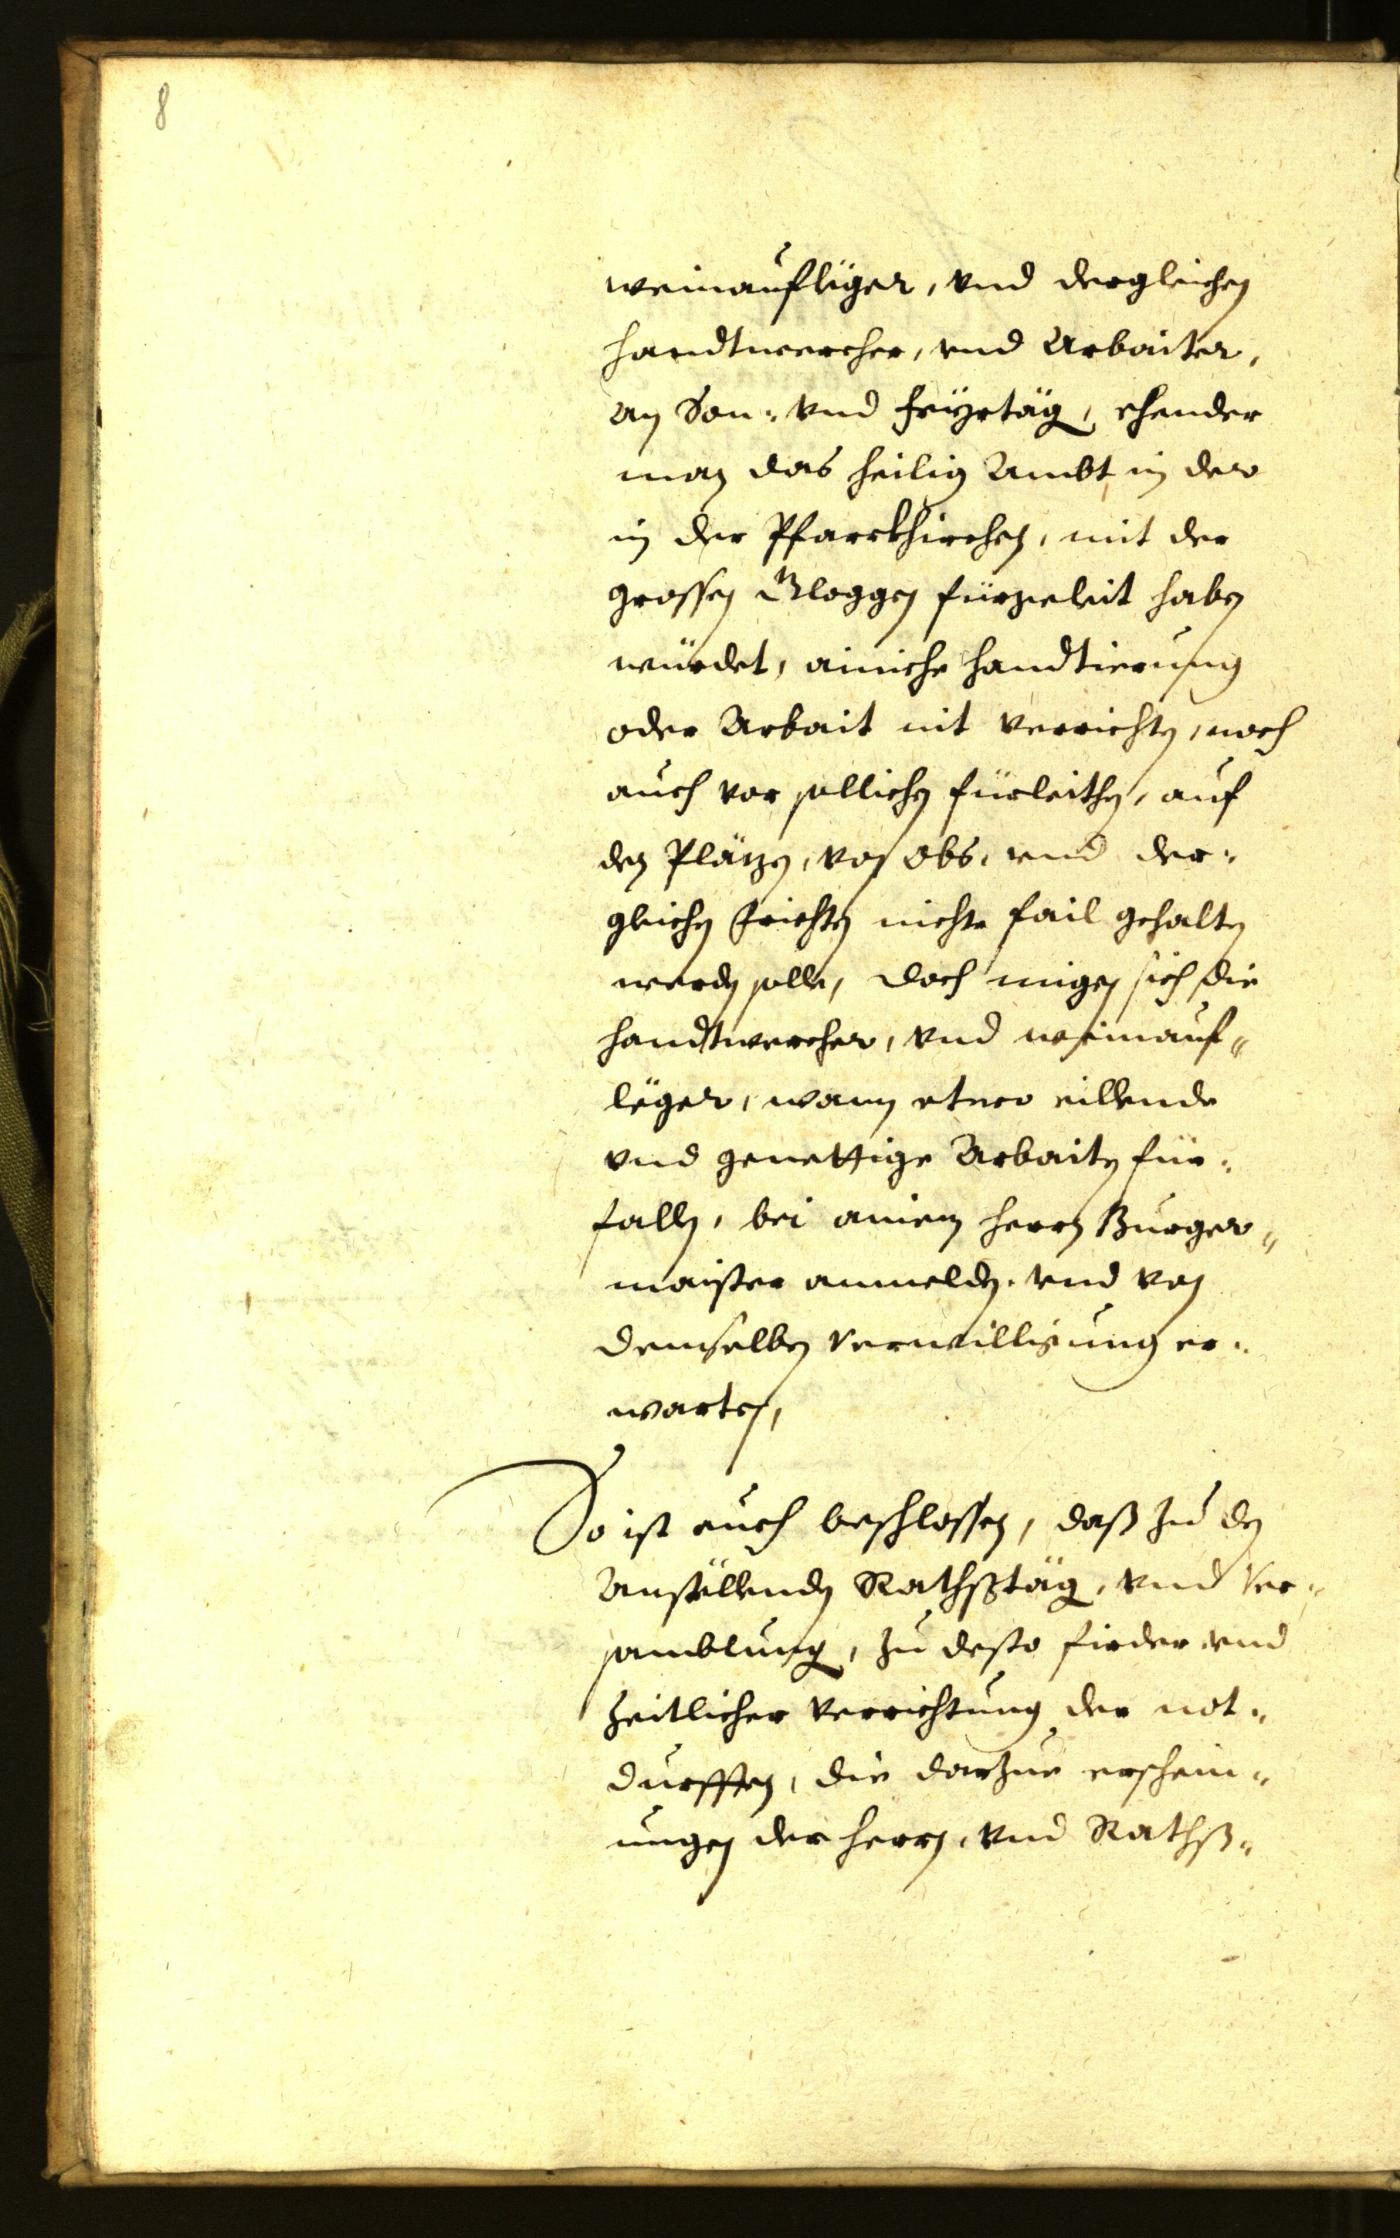 8
weinaufleger, vnd dergleichen
handtwercher, vnd Arbaiter,
an Son- vnd Feyrtäg, ehender
man das heilig Ambt in der
in der Pfarrkhirchen, mit der
grossen Gloggen fürgeleit haben
würdet, ainiche handtierung
oder Arbait nit verrichten, noch
auch vor sollichen fürleithen, auf
den Pläzen, von obs, vnd der-
gleichen frichten nichts fail gehalten
werden solle, doch migen sich die
handtwercher, vnd weinauf-
leger, wann etwo eillende
vnd genettige Arbaiten für-
fallen, bei ainem herrn Burger-
maister anmelden, vnd von
demselben verwilligung er-
warten,
So ist auch beschlossen, daß zu den
Anstellenden Rathßtäg, vnd Ver-
samblung, zu desto firder vnd
zeitlicher verrichtung der not-
durfften, die darzue erschein-
ungen der herrn, vnd Rathß-